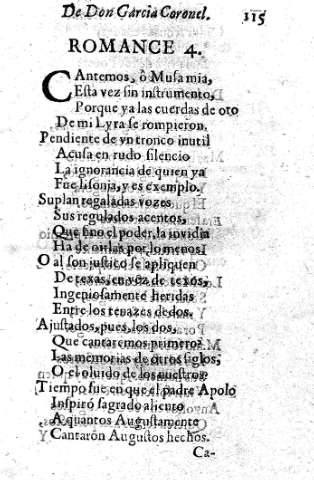 De Don Garcia Coronel. 115
ROMANCE 4.
CAntemos, ò Musa mia,
Esta vez sin instrumento,
Porque ya las cuerdas de oro
De mi Lyra se rompieron.
Pendiente de vn tronco inutil
Acusa en rudo silencio
La ignorancia de quien ya
Fue lisonja, y es exemplo.
Suplan regaladas vozes
Sus regulados acentos,
Que sino el poder, la invidia
Ha de oirlas por lo menos.
O al son justico se apliquen
De texas, en vez de texos,
Ingeniosamente heridas
Entre los tenazes dedos.
Ajustados, pues, los dos,
Que cantaremos primero?
Las memorias de otros siglos,
O el oluido de los nuestros?
Tiempo fue, en que el padre Apolo
Inspirò sagrado aliento
A quantos Augustamente
Cantarón Augustos hechos.
Ca-